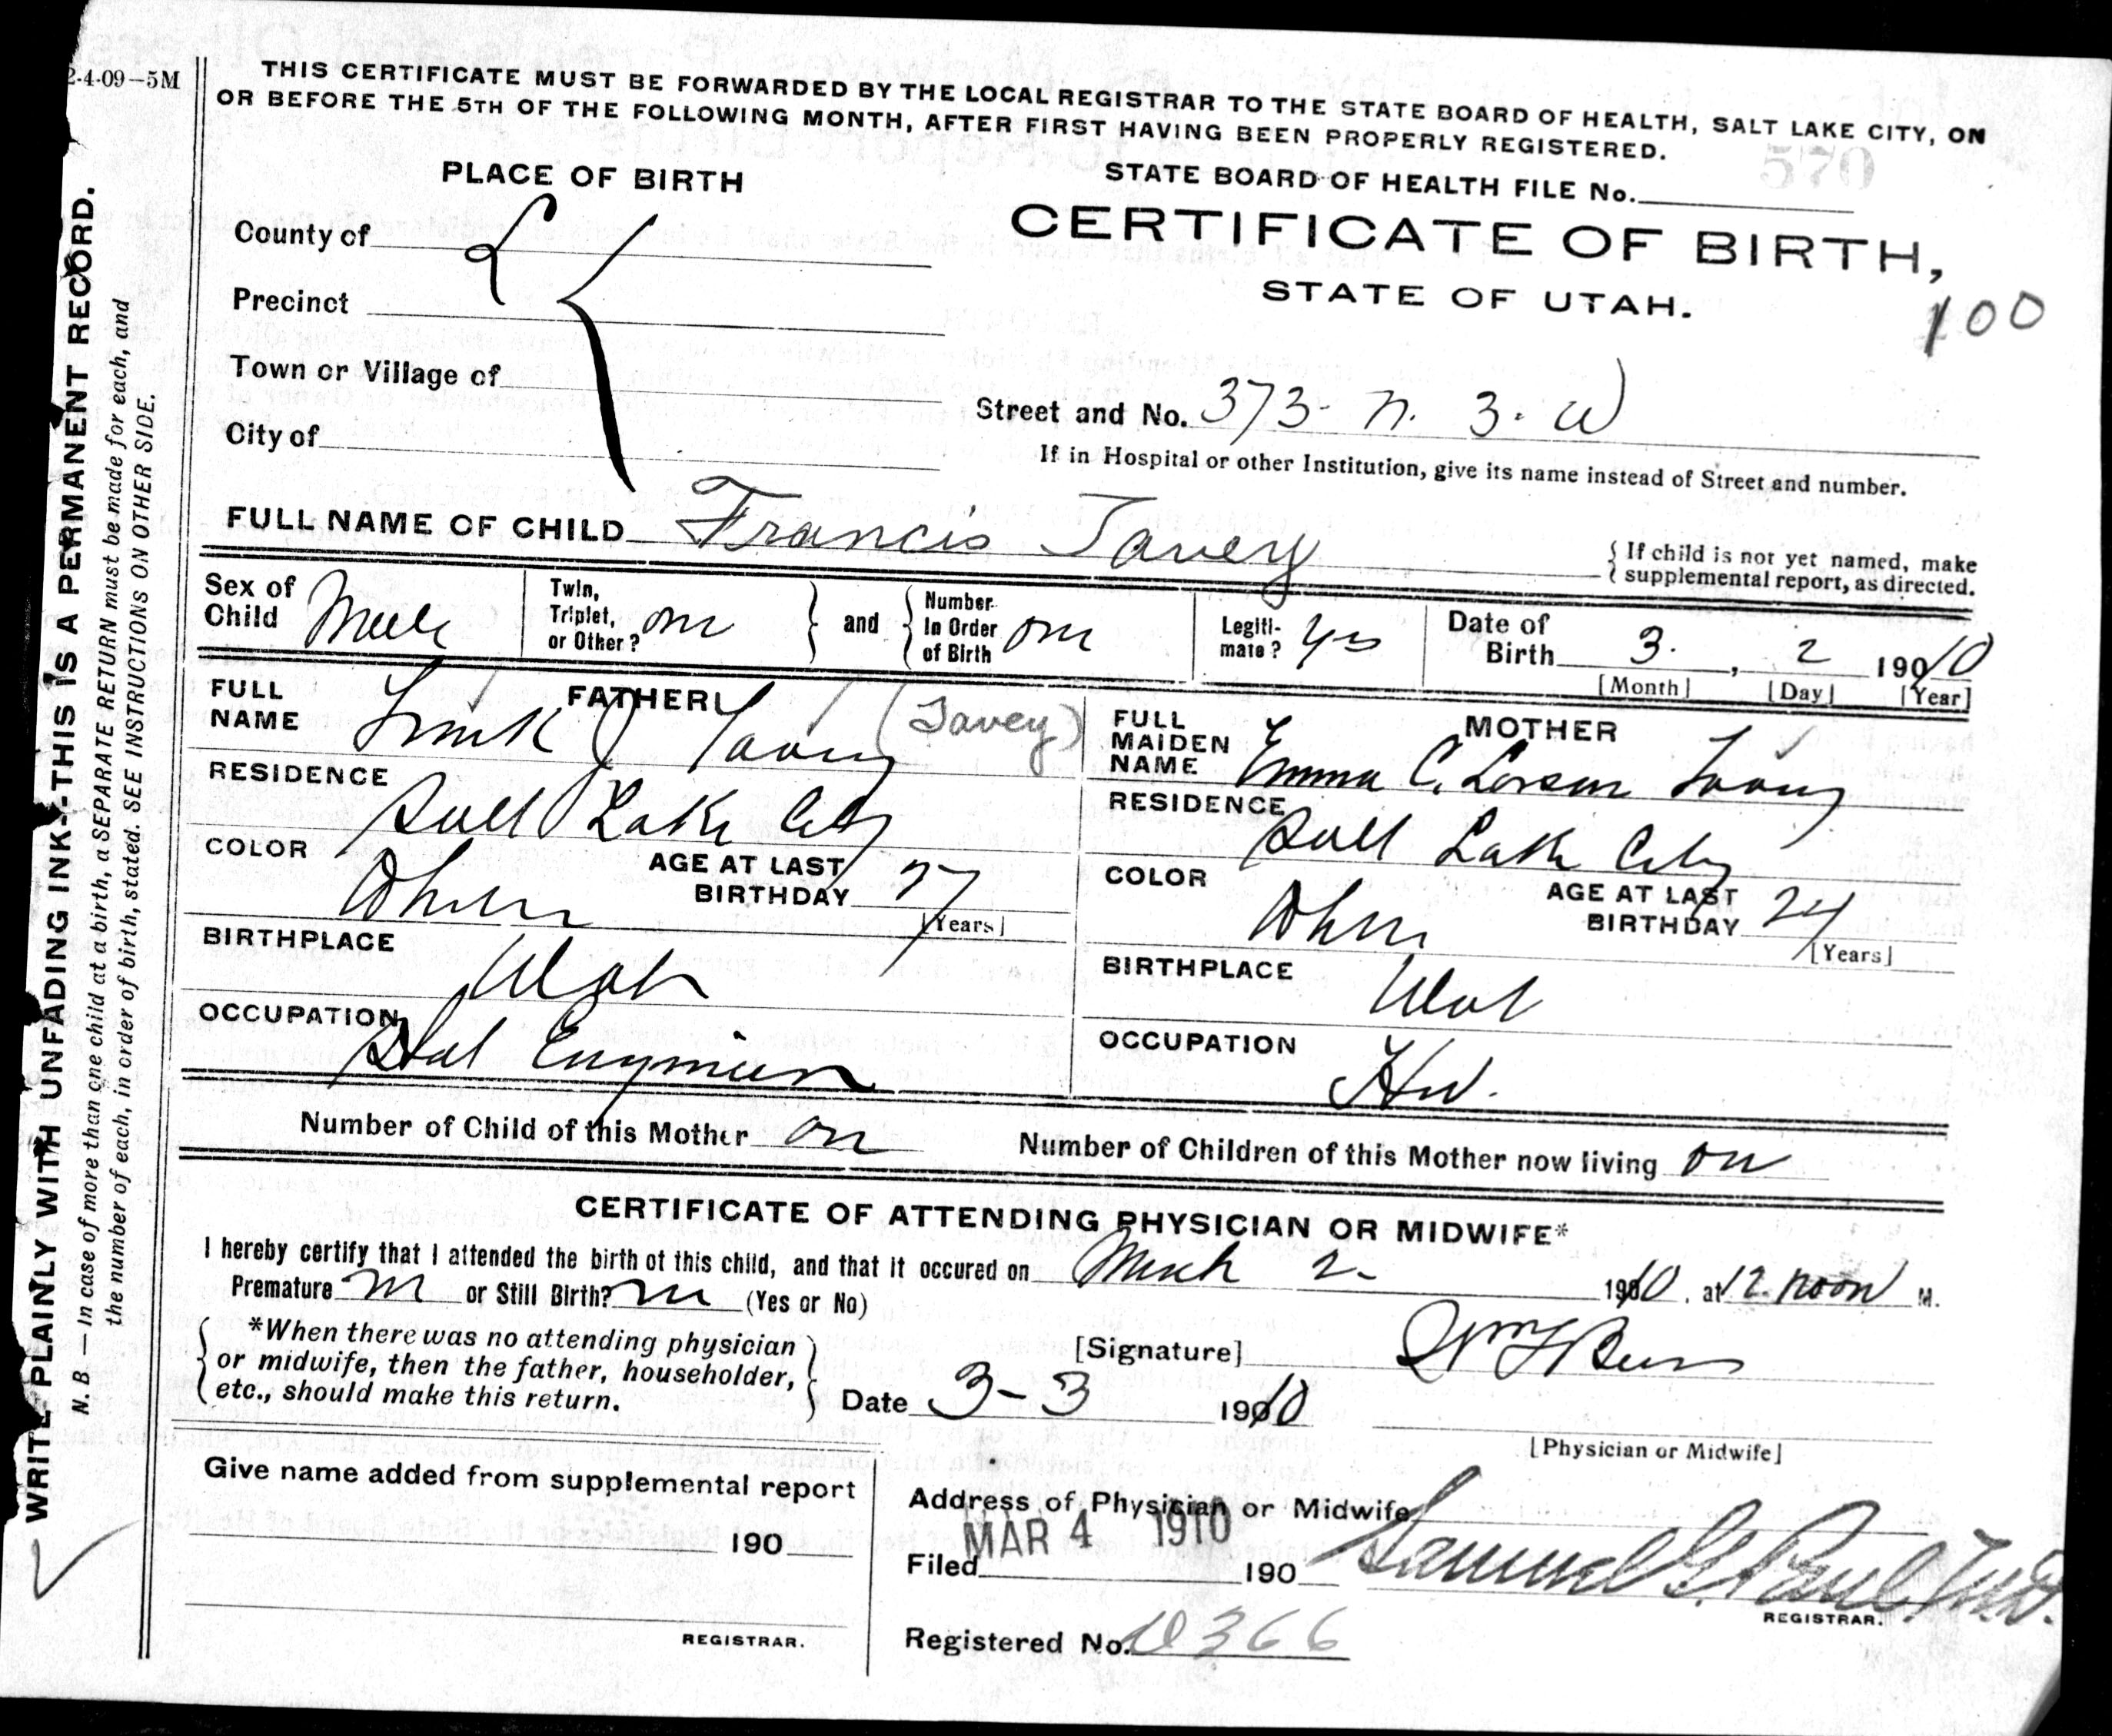 2-4-09—5M
THIS CERTIFICATE MUST BE FORWARDED BY THE LOCAL REGISTRAR TO THE STATE BOARD OF HEALTH, SALT LAKE CITY, ON
OR BEFORE THE 5TH OF THE FOLLOWING MONTH, AFTER FIRST HAVING BEEN PROPERLY REGISTERED.
570
PLACE OF BIRTH
STATE BOARD OF HEALTH FILE No.
CERTIFICATE OF BIRTH,
STATE OF UTAH.
100
County of
Precinct
Town or Village of
City of
Street and No. 373- N. 3. W
If in Hospital or other Institution, give its name instead of Street and number.
FULL NAME OF CHILD Francis Tavey
{ If child is not yet named, make
supplemental report, as directed.
Sex of Child Male
Twin, Triplet, or Other?
and
Number In Order of Birth
Legitimate? yes
Date of Birth 3. , 2 1910
[Month] [Day] [Year]
FATHER
FULL NAME Frank J Tavey (Tavey)
RESIDENCE
Salt Lake City
COLOR
White
AGE AT LAST BIRTHDAY 27
[Years]
BIRTHPLACE
Utah
OCCUPATION
MOTHER
FULL MAIDEN NAME Emma C. Larson Tavey
RESIDENCE
Salt Lake City
COLOR
White
AGE AT LAST BIRTHDAY 24
[Years]
BIRTHPLACE
Utah
OCCUPATION
Hw.
Number of Child of this Mother on
Number of Children of this Mother now living on
CERTIFICATE OF ATTENDING PHYSICIAN OR MIDWIFE*
I hereby certify that I attended the birth of this child, and that it occured on March 2- 1910, at 12. noon M.
Premature or Still Birth? (Yes or No)
*When there was no attending physician
or midwife, then the father, householder,
etc., should make this return.
[Signature]
Date 3-3 1910
[Physician or Midwife]
Give name added from supplemental report
190
REGISTRAR.
Address of Physician or Midwife
MAR 4 1910
Filed 190
Samuel G. Paul, M.D.
REGISTRAR.
Registered No. 366
WRITE PLAINLY WITH UNFADING INK--THIS IS A PERMANENT RECORD.
N. B — In case of more than one child at a birth, a SEPARATE RETURN must be made for each, and
the number of each, in order of birth, stated. SEE INSTRUCTIONS ON OTHER SIDE.